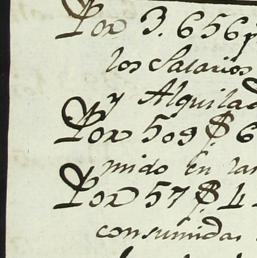 Por 3.656p
los Salarios
y Alquilad
Por 509 $ 6
mido en las
Por 57 $ 4
consumidas